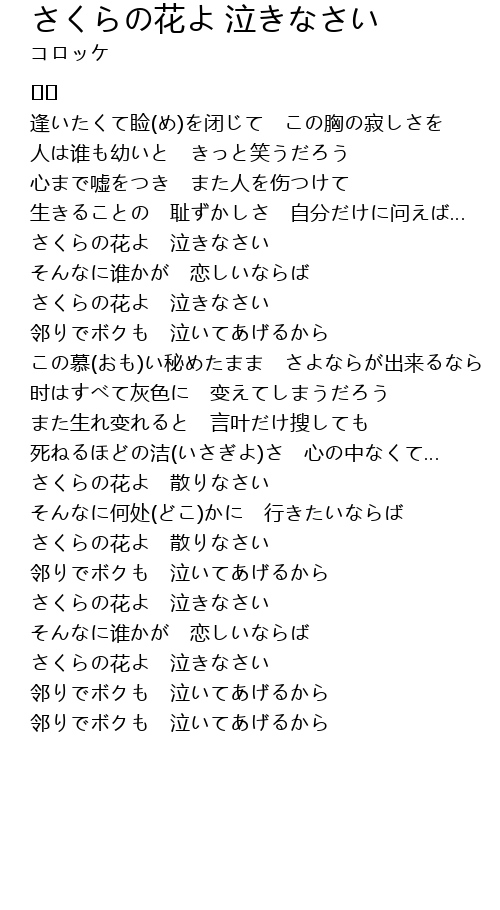 さくらの花よ 泣きなさい
コロッケ
逢いたくて睑(め)を闭じて　この胸の寂しさを
人は谁も幼いと　きっと笑うだろう
心まで嘘をつき　また人を伤つけて
生きることの　耻ずかしさ　自分だけに问えば...
さくらの花よ　泣きなさい
そんなに谁かが　恋しいならば
さくらの花よ　泣きなさい
邻りでボクも　泣いてあげるから
この慕(おも)い秘めたまま　さよならが出来るなら
时はすべて灰色に　変えてしまうだろう
また生れ変れると　言叶だけ捜しても
死ねるほどの洁(いさぎよ)さ　心の中なくて...
さくらの花よ　散りなさい
そんなに何処(どこ)かに　行きたいならば
さくらの花よ　散りなさい
邻りでボクも　泣いてあげるから
さくらの花よ　泣きなさい
そんなに谁かが　恋しいならば
さくらの花よ　泣きなさい
邻りでボクも　泣いてあげるから
邻りでボクも　泣いてあげるから